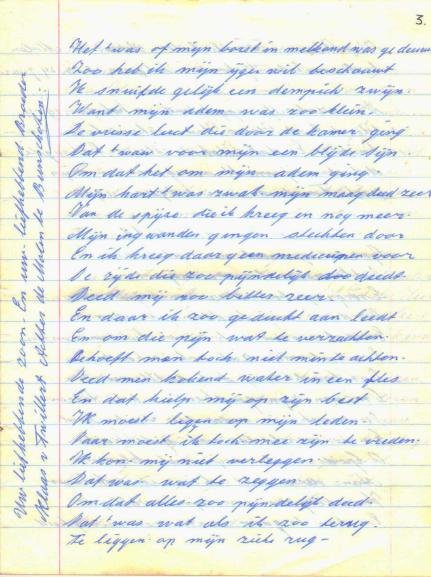 3.
Het 't was of mijn borst in melkand was geduwt
Zoo heb ik mijn ijger wil beschouwt
Ik snuifde gelijk een dempich zwijn.
Want mijn adem was zoo klein.
De vrisse luct die door de kamer ging
Dat 't waw voor mijn een blijde tijn
Om dat het om mijn adem ging.
Mijn hart 't was zwak mijn maag deed zeer
Van de spijze die ik kreeg en nog meer.
Mijn ingwanden gingen slechten door
En ik kreeg daar geen medicijnen voor
De zijde die zoo pijndelijk deedt.
Deed mij zoo bitter zeer.
En daar ik zoo gedrukt aan leedt
En om die pijn wat te verzachten.
Behoeft men toch niet min te achten.
Deed men kokend water in een fles
En dat hielp mij op zijn best
Ik moest ligen op mijn leden.
Daar moest ik toch mee zijn te vreden.
Ik kon mij niet verleggen.
Dat was wat te zeggen.
Om dat alles zoo pijndelijk deed.
Dat 't was wat als ik zoo terug.
Te liggen op mijn zieke rug -
Uw liefhebbende zoon. En uw liefhebbend Broeder
Klaas v Twillert Albes de Molen te Bunschoten: